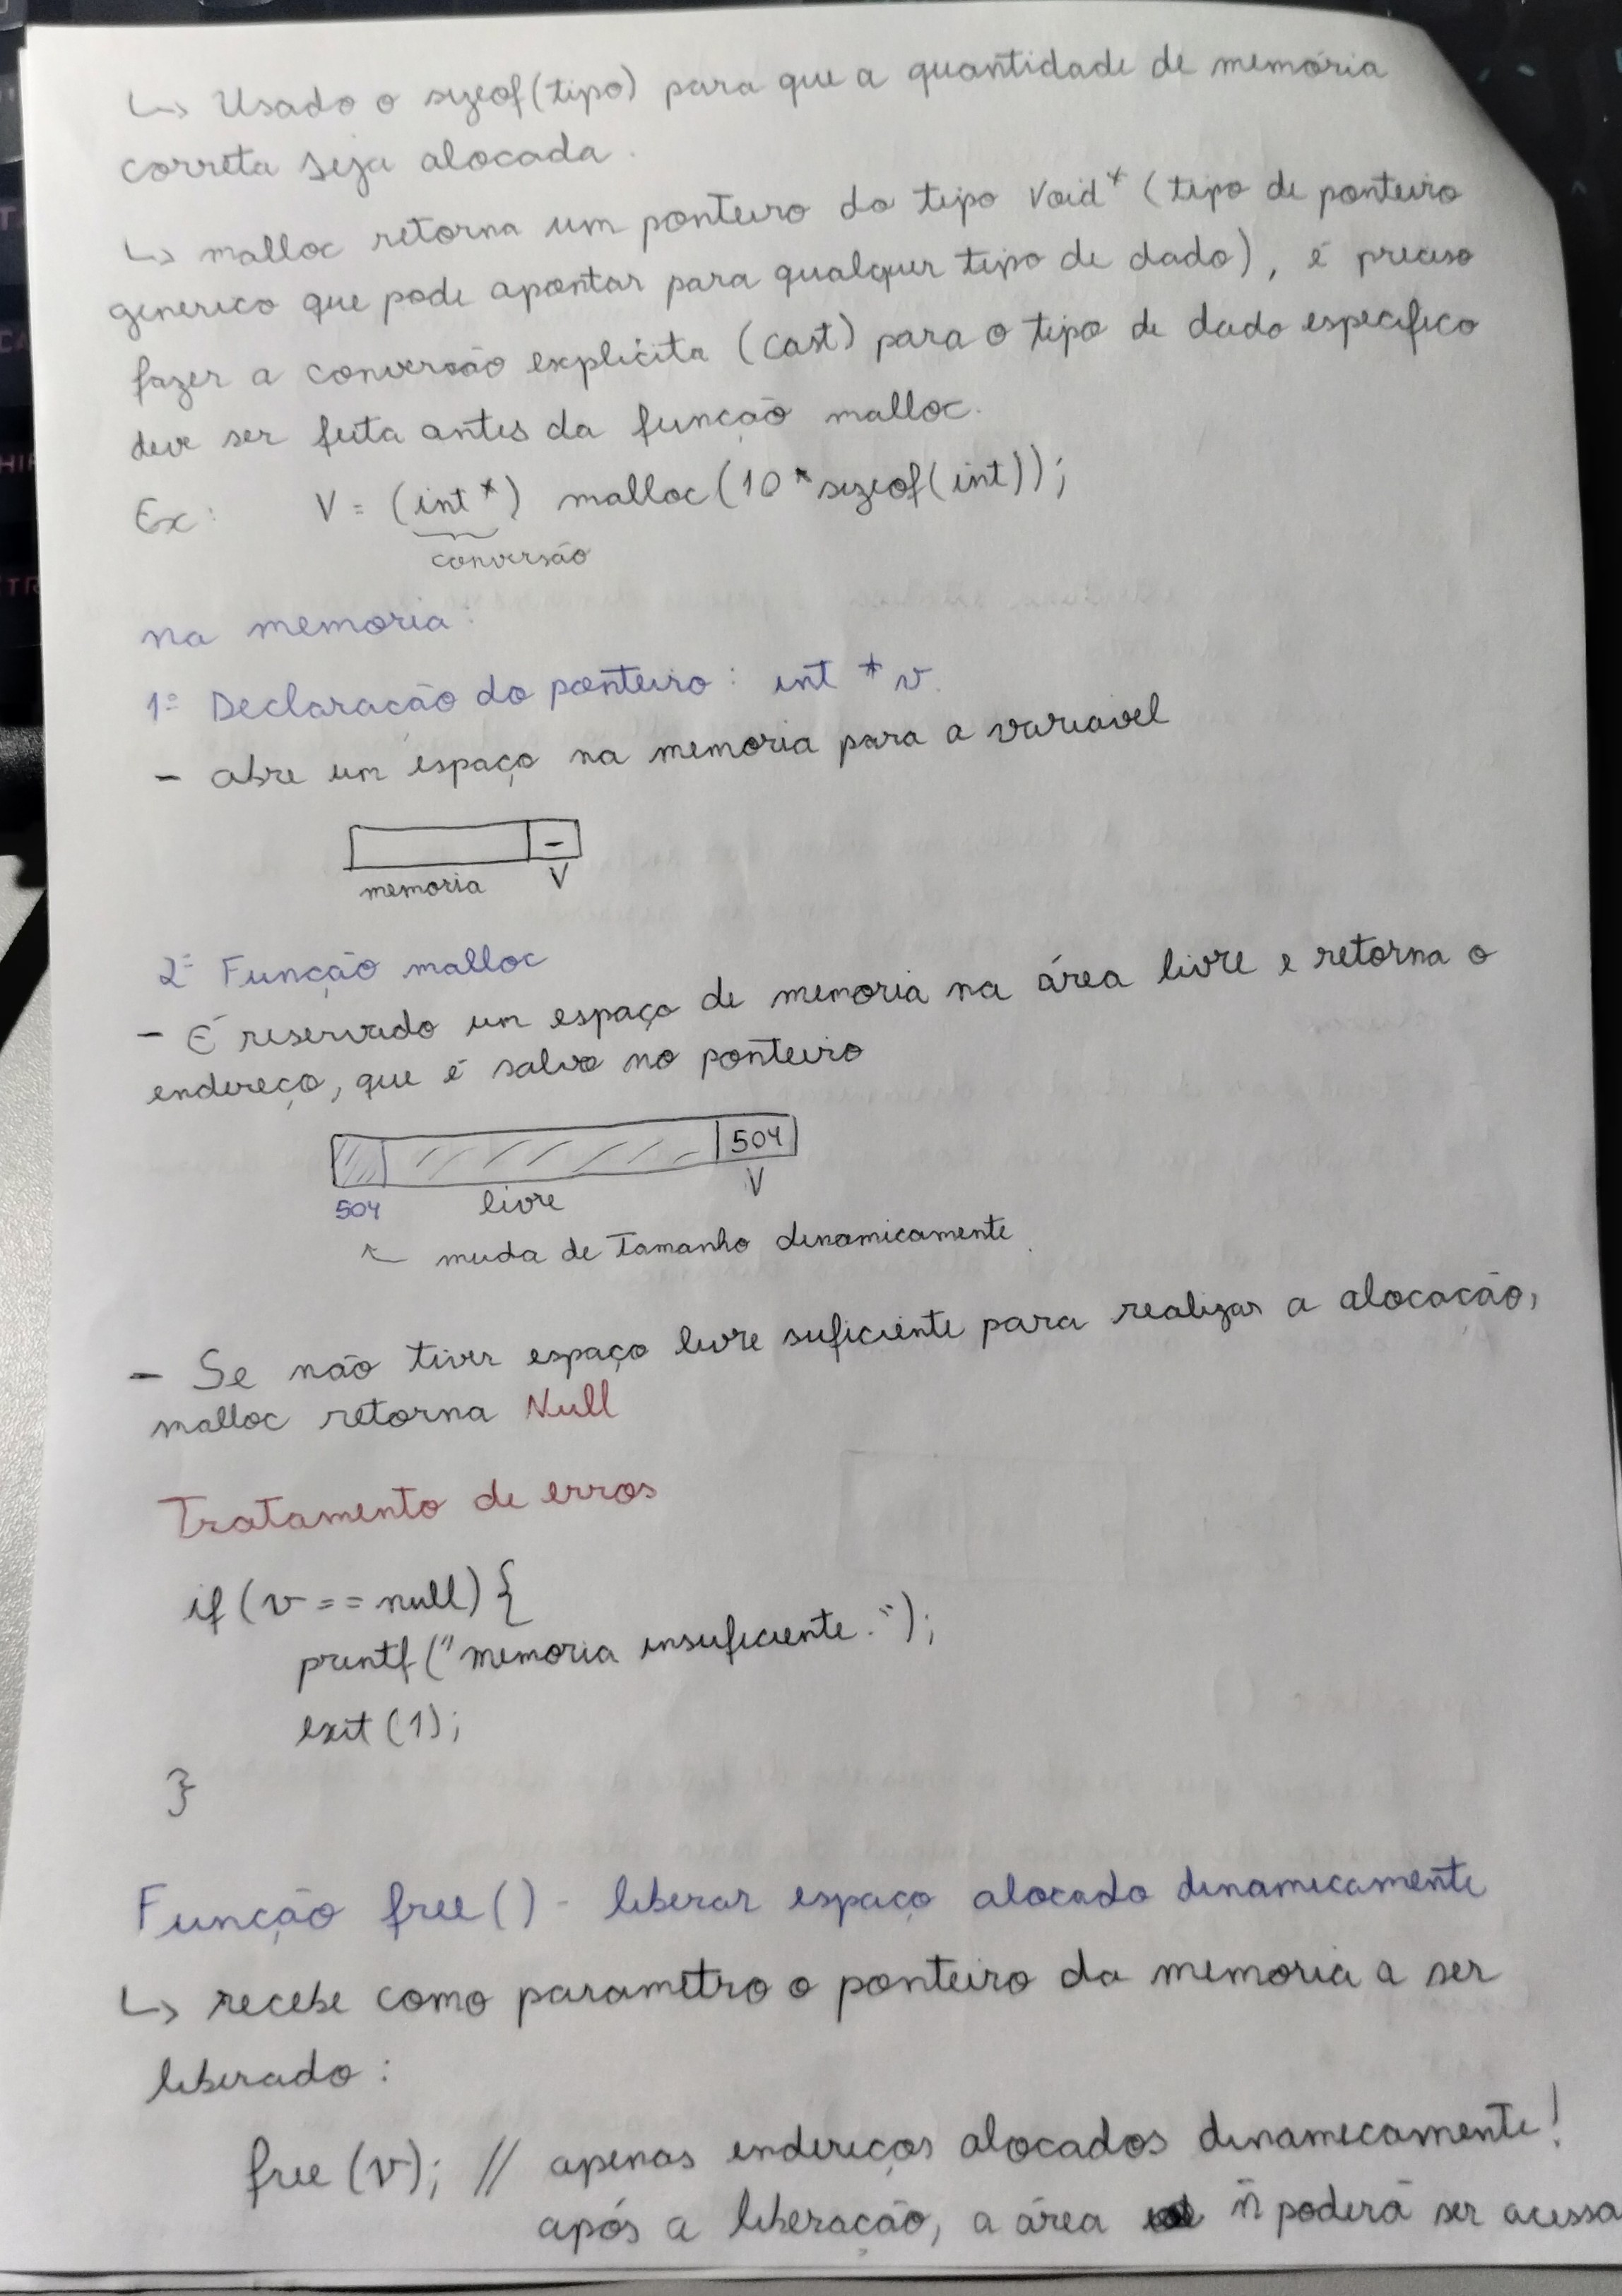 ↳ Usado o sizeof(tipo) para que a quantidade de memória
correta seja alocada.
↳ malloc retorna um ponteiro do tipo Void* (tipo de ponteiro
generico que pode apontar para qualquer tipo de dado), é preciso
fazer a conversão explícita (cast) para o tipo de dado especifico
deve ser feita antes da função malloc.
Ex: V = (int *) malloc(10 * sizeof(int));
conversão
na memoria:
1º Declaração do ponteiro: int * v.
- abre um espaço na memoria para a variavel
-
memoria V
2º Função malloc
- É reservado um espaço de memoria na área livre e retorna o
endereço, que é salvo no ponteiro
504
504 livre V
↖ muda de Tamanho dinamicamente.
- Se não tiver espaço livre suficiente para realizar a alocação,
malloc retorna Null
Tratamento de erros
if (v == null) {
printf("memoria insuficiente.");
exit(1);
}
Função free() - liberar espaço alocado dinamicamente
↳ recebe como parametro o ponteiro da memoria a ser
liberado:
free (v); // apenas endereços alocados dinamicamente!
após a liberação, a área ñ poderá ser acessa